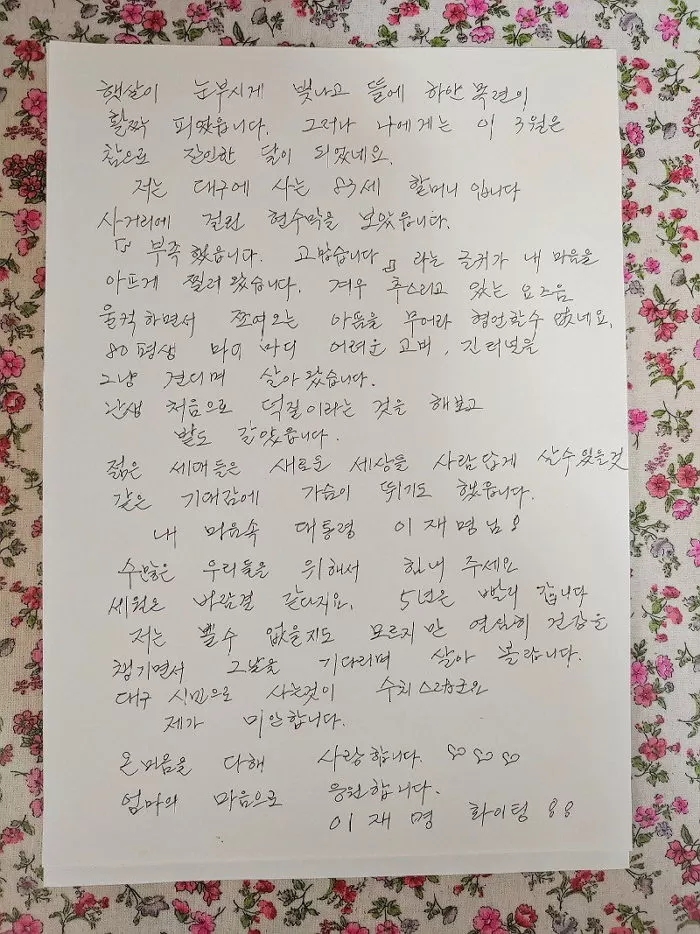 햇살이 눈부시게 빛나고 뜰에 하얀 목련이
활짝 피었읍니다. 그러나 나에게는 이 3월은
참으로 잔인한 달이 되었네요.
저는 대구에 사는 83세 할머니 입니다
사거리에 걸린 현수막을 보았읍니다.
『부족했읍니다. 고맙습니다』 라는 글귀가 내 마음을
아프게 찔러 왔습니다. 겨우 추스리고 있는 요즈음
울컥 하면서 쪼여오는 아픔을 무어라 형언할수 없네요.
80평생 마이 마디 어려운 고비, 긴 터널을
그냥 견디며 살아 왔습니다.
난생 처음으로 덕질이라는 것을 해보고
밭도 갈았읍니다.
젊은 세대들은 새로운 세상을 사람답게 살수있을것
같은 기대감에 가슴이 뛰기도 했읍니다.
내 마음속 대통령 이재명님!
수많은 우리들을 위해서 힘내 주세요
세월은 바람결 같다지요. 5년은 빨리 갑니다
저는 뽈수 없을지도 모르지만 열심히 건강을
챙기면서 그날을 기다리며 살아 볼랍니다.
대구 시민으로 사는것이 수치스러운요
제가 미안합니다.
온 마음을 다해 사랑합니다. ♡♡♡
엄마의 마음으로 응원합니다.
이재명 화이팅!!